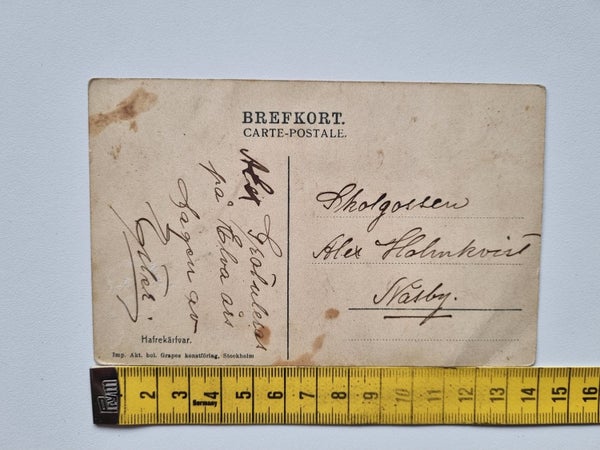 BREFKORT.
CARTE-POSTALE.
Alex Gratuleras
på Elva års
dagen av
Ester.
Skolgossen
Alex Holmkvist
Näsby.
Hafrekärfvar.
Imp. Akt. bol. Grapes konstförlag, Stockholm
2 3 4 5 6 7 8 9 10 11 12 13 14 15 16
Germany